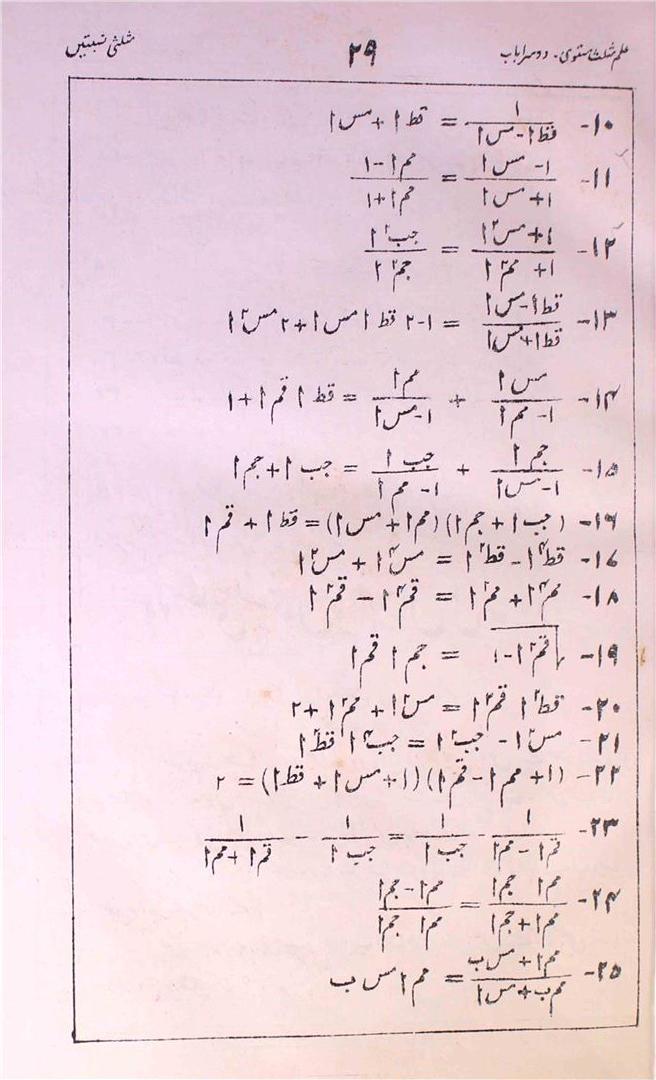 علم مثلث مستوی - دوسرا باب ۲۹ مثلثی نسبتیں
۱۰- ۱ / (قط ا - مس ا) = قط ا + مس ا
۱۱- (۱ - مس ا) / (۱ + مس ا) = (مم ا - ۱) / (مم ا + ۱)
۱۲- (۱ + مس۲ ا) / (۱ + مم۲ ا) = جب۲ ا / جم۲ ا
۱۳- (قط ا - مس ا) / (قط ا + مس ا) = ۱ - ۲ قط ا مس ا + ۲ مس۲ ا
۱۴- مس ا / (۱ - مم ا) + مم ا / (۱ - مس ا) = قط ا قم ا + ۱
۱۵- جم ا / (۱ - مس ا) + جب ا / (۱ - مم ا) = جب ا + جم ا
۱۶- (جب ا + جم ا) (مم ا + مس ا) = قط ا + قم ا
۱۷- قط۴ ا - قط۲ ا = مس۴ ا + مس۲ ا
۱۸- مم۴ ا + مم۲ ا = قم۴ ا - قم۲ ا
۱۹- √(قم۲ ا - ۱) = جم ا قم ا
۲۰- قط۲ ا قم۲ ا = مس۲ ا + مم۲ ا + ۲
۲۱- مس۲ ا - جب۲ ا = جب۴ ا قط۲ ا
۲۲- (۱ + مم ا - قم ا) (۱ + مس ا + قط ا) = ۲
۲۳- ۱ / (قم ا - مم ا) - ۱ / جب ا = ۱ / جب ا - ۱ / (قم ا + مم ا)
۲۴- مم ا جم ا / (مم ا + جم ا) = (مم ا - جم ا) / مم ا جم ا
۲۵- (مم ا + مس ب) / (مم ب + مس ا) = مم ا مس ب